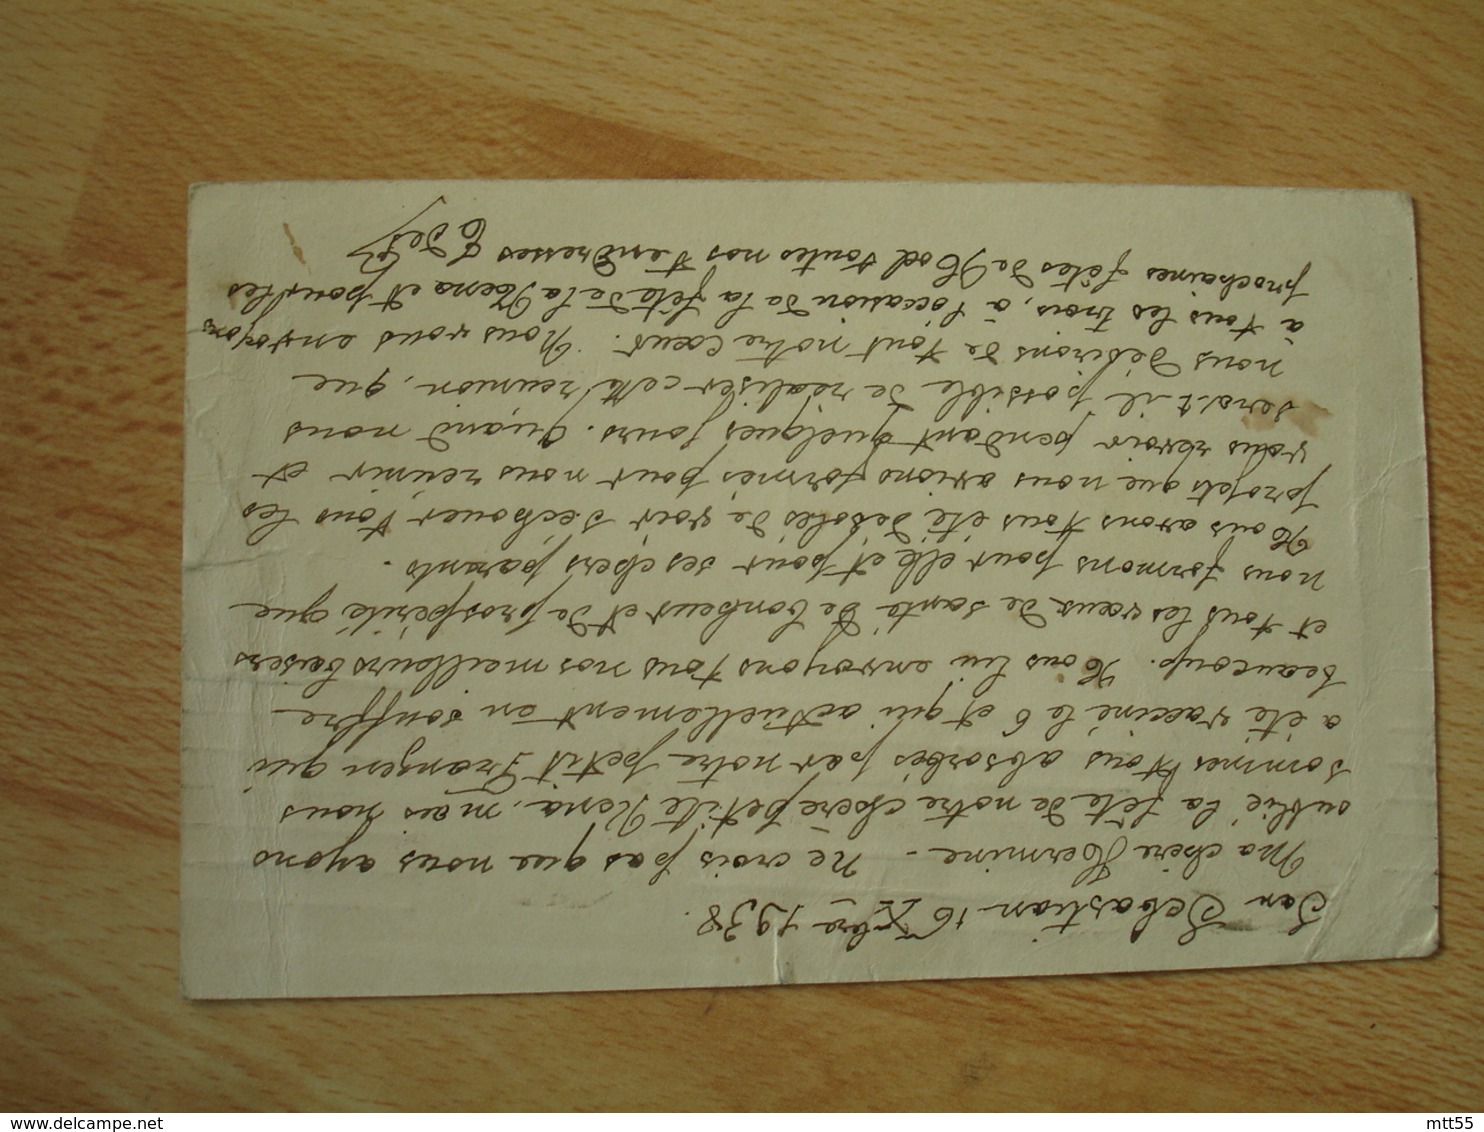 San Sebastian 16 Xbre 1938.
Ma chère Hermine - Ne crois pas que nous ayons
oublié la fête de notre chère petite Xena, mais nous
sommes tous absorbés par notre petit Franzen qui
a été vacciné le 6 et qui actuellement en souffre
beaucoup. Nous lui envoyons tous nos meilleurs baisers
et tous les vœux de santé de bonheur et de prospérité que
nous formons pour elle et pour ses chers parents.
Nous avons tous été désolés de voir échouer tous les
projets que nous avions formés pour nous réunir et
vous revoir pendant quelques jours. Quand nous
serat il possible de réaliser cette reunion, que
nous désirons de tout notre cœur. Nous vous envoyons
à tous les trois, à l'occasion de la fête de la Xena et pour les
prochaines fêtes de Noël toutes nos tendresses
mtt55